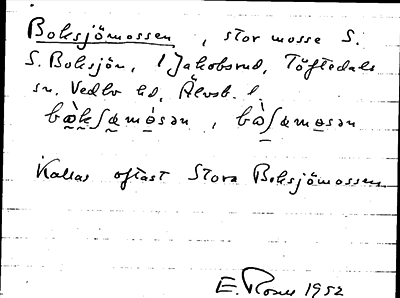 Boksjömossen, stor mosse S.
S. Boksjön, 1 Jakobsrud, Töftedals
sn. Vedbo hd, Älvsb. l.
bæ̀kʃæmòsən, bæ̀ʃæmosən
Kallas oftast Stora Boksjömossen
E. Rosen 1952